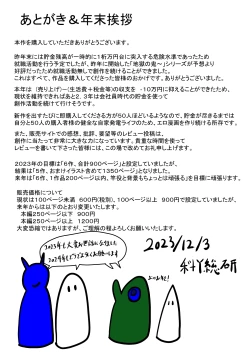 あとがき＆年末挨拶
本作を購入していただきありがとうございます。
昨年末には貯金残高が一時的に1桁万円台に突入する危険水準であったため
就職活動を行う予定でしたが、昨年に開始した「地獄の竜～」シリーズが予想より
好評だったため就職活動無しで創作を続けることができました。
これはすべて、作品を購入してくださった皆様のおかげです。ありがとうございました。
本年は（売り上げ）-（生活費＋税金等）の収支を -10万円に抑えることができたため、
現状を維持できればあと2、3年は会社員時代の貯金を使って
創作活動を続けて行けそうです。
新作を出すたびに即購入してくださる方が50人ほどいるようなので、貯金が尽きるまでは
自分と50人の購入者様の健全な自家発電ライフのため、エロ漫画を作り続ける所存です。
また、販売サイトでの感想、批評、要望等のレビュー投稿は、
創作に当たって非常に大きな力になっています。貴重な時間を使って
レビューを書いて下さった皆様には、この場で改めてお礼申し上げます。
2023年の目標は「6作、合計900ページ」と設定していましたが、
結果は「5作、おまけイラスト含めて1350ページ」となりました。
来年は「6作、1作品200ページ以内、手段と背景もちょっとは頑張る」を目標に頑張ります。
販売価格について
現状は100ページ未満 600円（税別）、100ページ以上 900円で設定していましたが、
来年からは以下のとおり変更いたします。
本編250ページ以下 900円
本編250ページ以上 1200円
大変恐縮ではありますが、ご理解の程よろしくお願いいたします。
2023/12/3
2023年も大変お世話になりました
2024年もどうぞよろしくお願いします